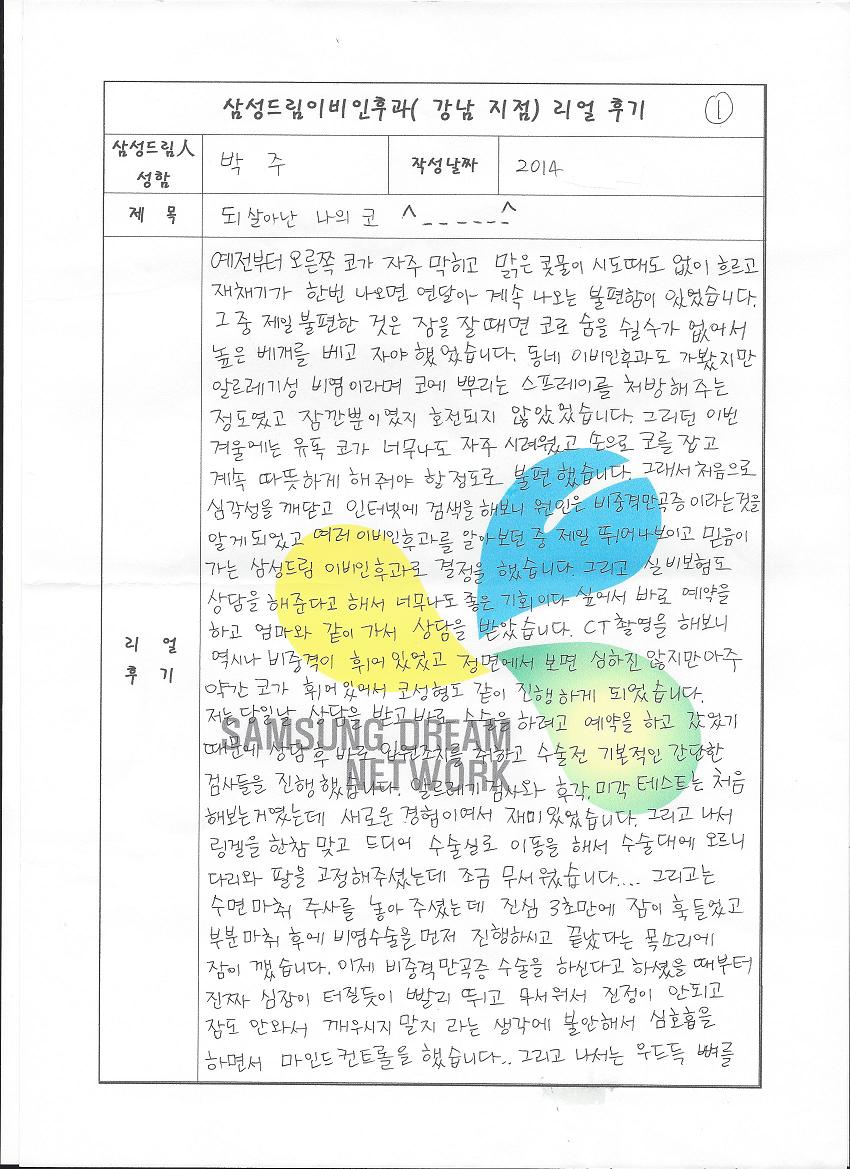 삼성드림이비인후과( 강남 지점) 리얼 후기 ①
삼성드림人 성함
박 주
작성날짜
2014
제 목
되살아난 나의 코 ^_____^
리 얼
후 기
예전부터 오른쪽 코가 자주 막히고 맑은 콧물이 시도때도 없이 흐르고
재채기가 한번 나오면 연달아 계속 나오는 불편함이 있었습니다.
그 중 제일 불편한 것은 잠을 잘때면 코로 숨을 쉴수가 없어서
높은 베개를 베고 자야 했었습니다. 동네 이비인후과도 가봤지만
알르레기성 비염이라며 코에 뿌리는 스프레이를 처방해 주는
정도였고 잠깐뿐이였지 호전되지 않았었습니다. 그러던 이번
겨울에는 유독 코가 너무나도 자주 시려웠고 손으로 코를 잡고
계속 따뜻하게 해줘야 할정도로 불편했습니다. 그래서 처음으로
심각성을 깨닫고 인터넷에 검색을 해보니 원인은 비중격만곡증이라는것을
알게되었고 여러 이비인후과를 알아보던 중 제일 뛰어나보이고 믿음이
가는 삼성드림 이비인후과로 결정을 했습니다. 그리고 실비보험도
상담을 해준다고 해서 너무나도 좋은 기회이다 싶어서 바로 예약을
하고 엄마와 같이 가서 상담을 받았습니다. CT촬영을 해보니
역시나 비중격이 휘어있었고 정면에서 보면 심하진 않지만 아주
약간 코가 휘어있어서 코성형도 같이 진행하게 되었습니다.
저는 당일날 상담을 받고 바로 수술을 하려고 예약을 하고 갔었기
때문에 상담 후 바로 입원조치를 취하고 수술전 기본적인 간단한
검사들을 진행했습니다. 알르레기 검사와 후각, 미각 테스트는 처음
해보는거였는데 새로운 경험이여서 재미있었습니다. 그리고 나서
링겔을 한참 맞고 드디어 수술실로 이동을 해서 수술대에 오르니
다리와 팔을 고정해주셨는데 조금 무서웠습니다.... 그리고는
수면마취 주사를 놓아 주셨는데 진심 3초만에 잠이 훅 들었고
부분마취 후에 비염수술을 먼저 진행하시고 끝났다는 목소리에
잠이 깼습니다. 이제 비중격만곡증 수술을 하신다고 하셨을 때부터
진짜 심장이 터질듯이 빨리 뛰고 무서워서 진정이 안되고
잠도 안와서 깨우시지 말지 라는 생각에 불안해서 심호흡을
하면서 마인드컨트롤을 했습니다.. 그리고 나서는 우드득 뼈를
SAMSUNG DREAM
NETWORK